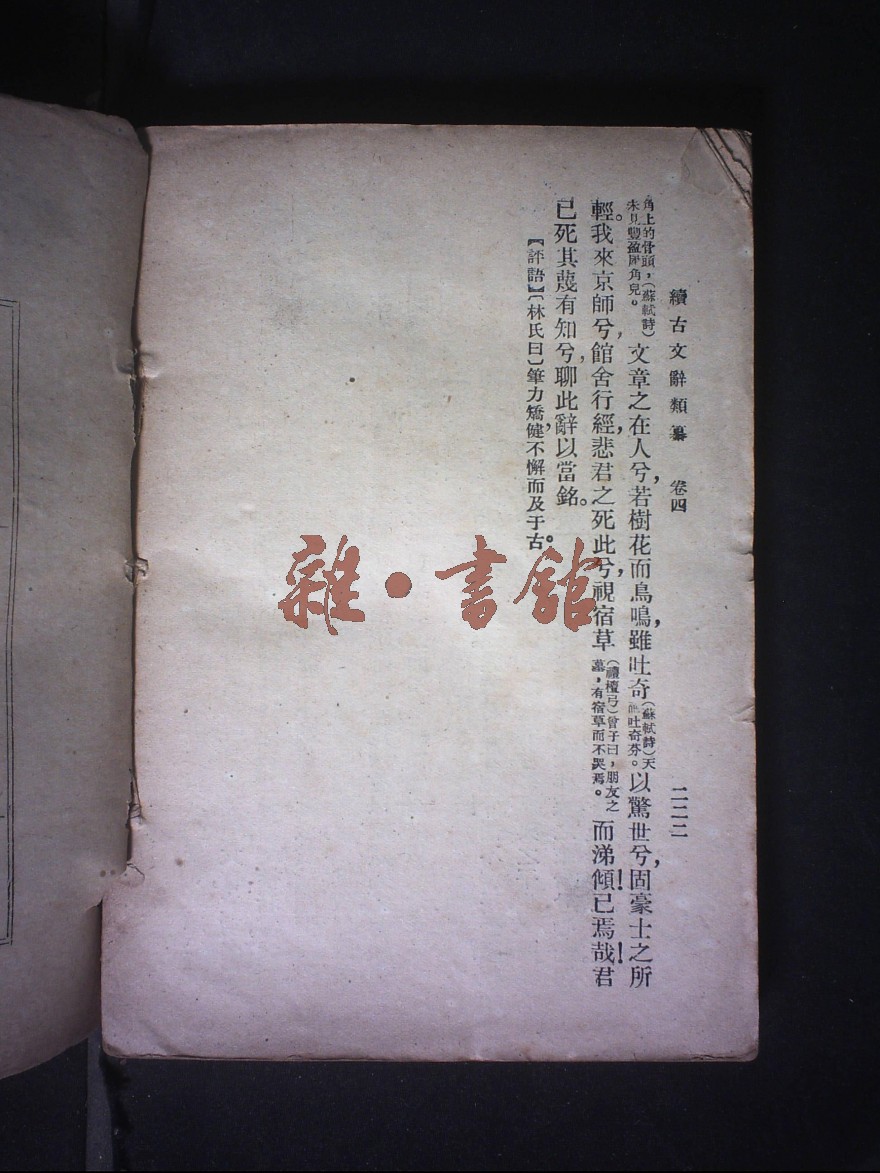 續古文辭類纂　卷四　二二二
角上的骨頭，（蘇軾詩）
未見豐盈犀角兒。
文章之在人兮，若樹花而鳥鳴，雖吐奇
（蘇軾詩）天
吐奇芬。
以驚世兮，固豪士之所
輕。我來京師兮，館舍行經，悲君之死此兮，視宿草
（禮檀弓）曾子曰，朋友之
墓，有宿草而不哭焉。
而涕傾！已焉哉！君
已死其蔑有知兮，聊此辭以當銘。
【評語】〔林氏曰〕筆力矯健，不懈而及于古。
雜·書館